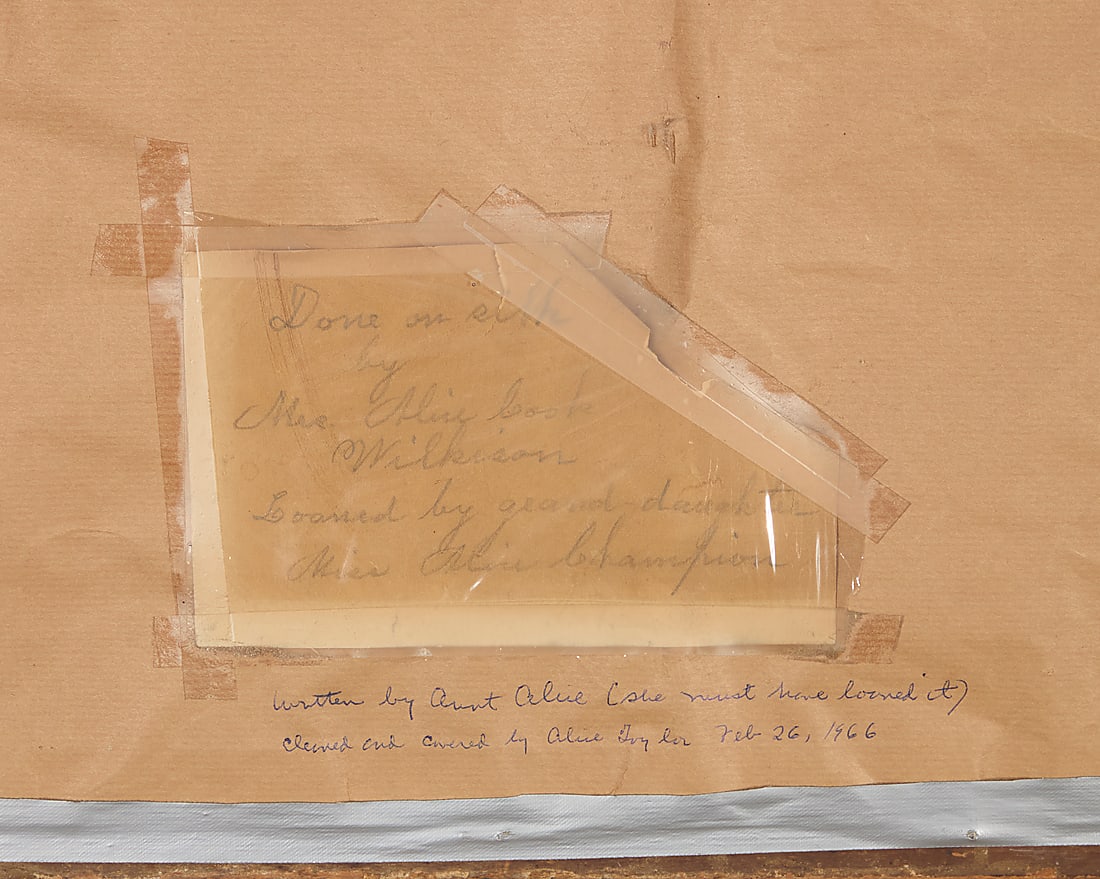 Done on silk
by
Mrs. Alice Cook
Wilkison
Loaned by grand-daughter
Miss Alice Champion
written by Aunt Alice (she must have loaned it)
cleaned and covered by Alice Taylor Feb 26, 1966